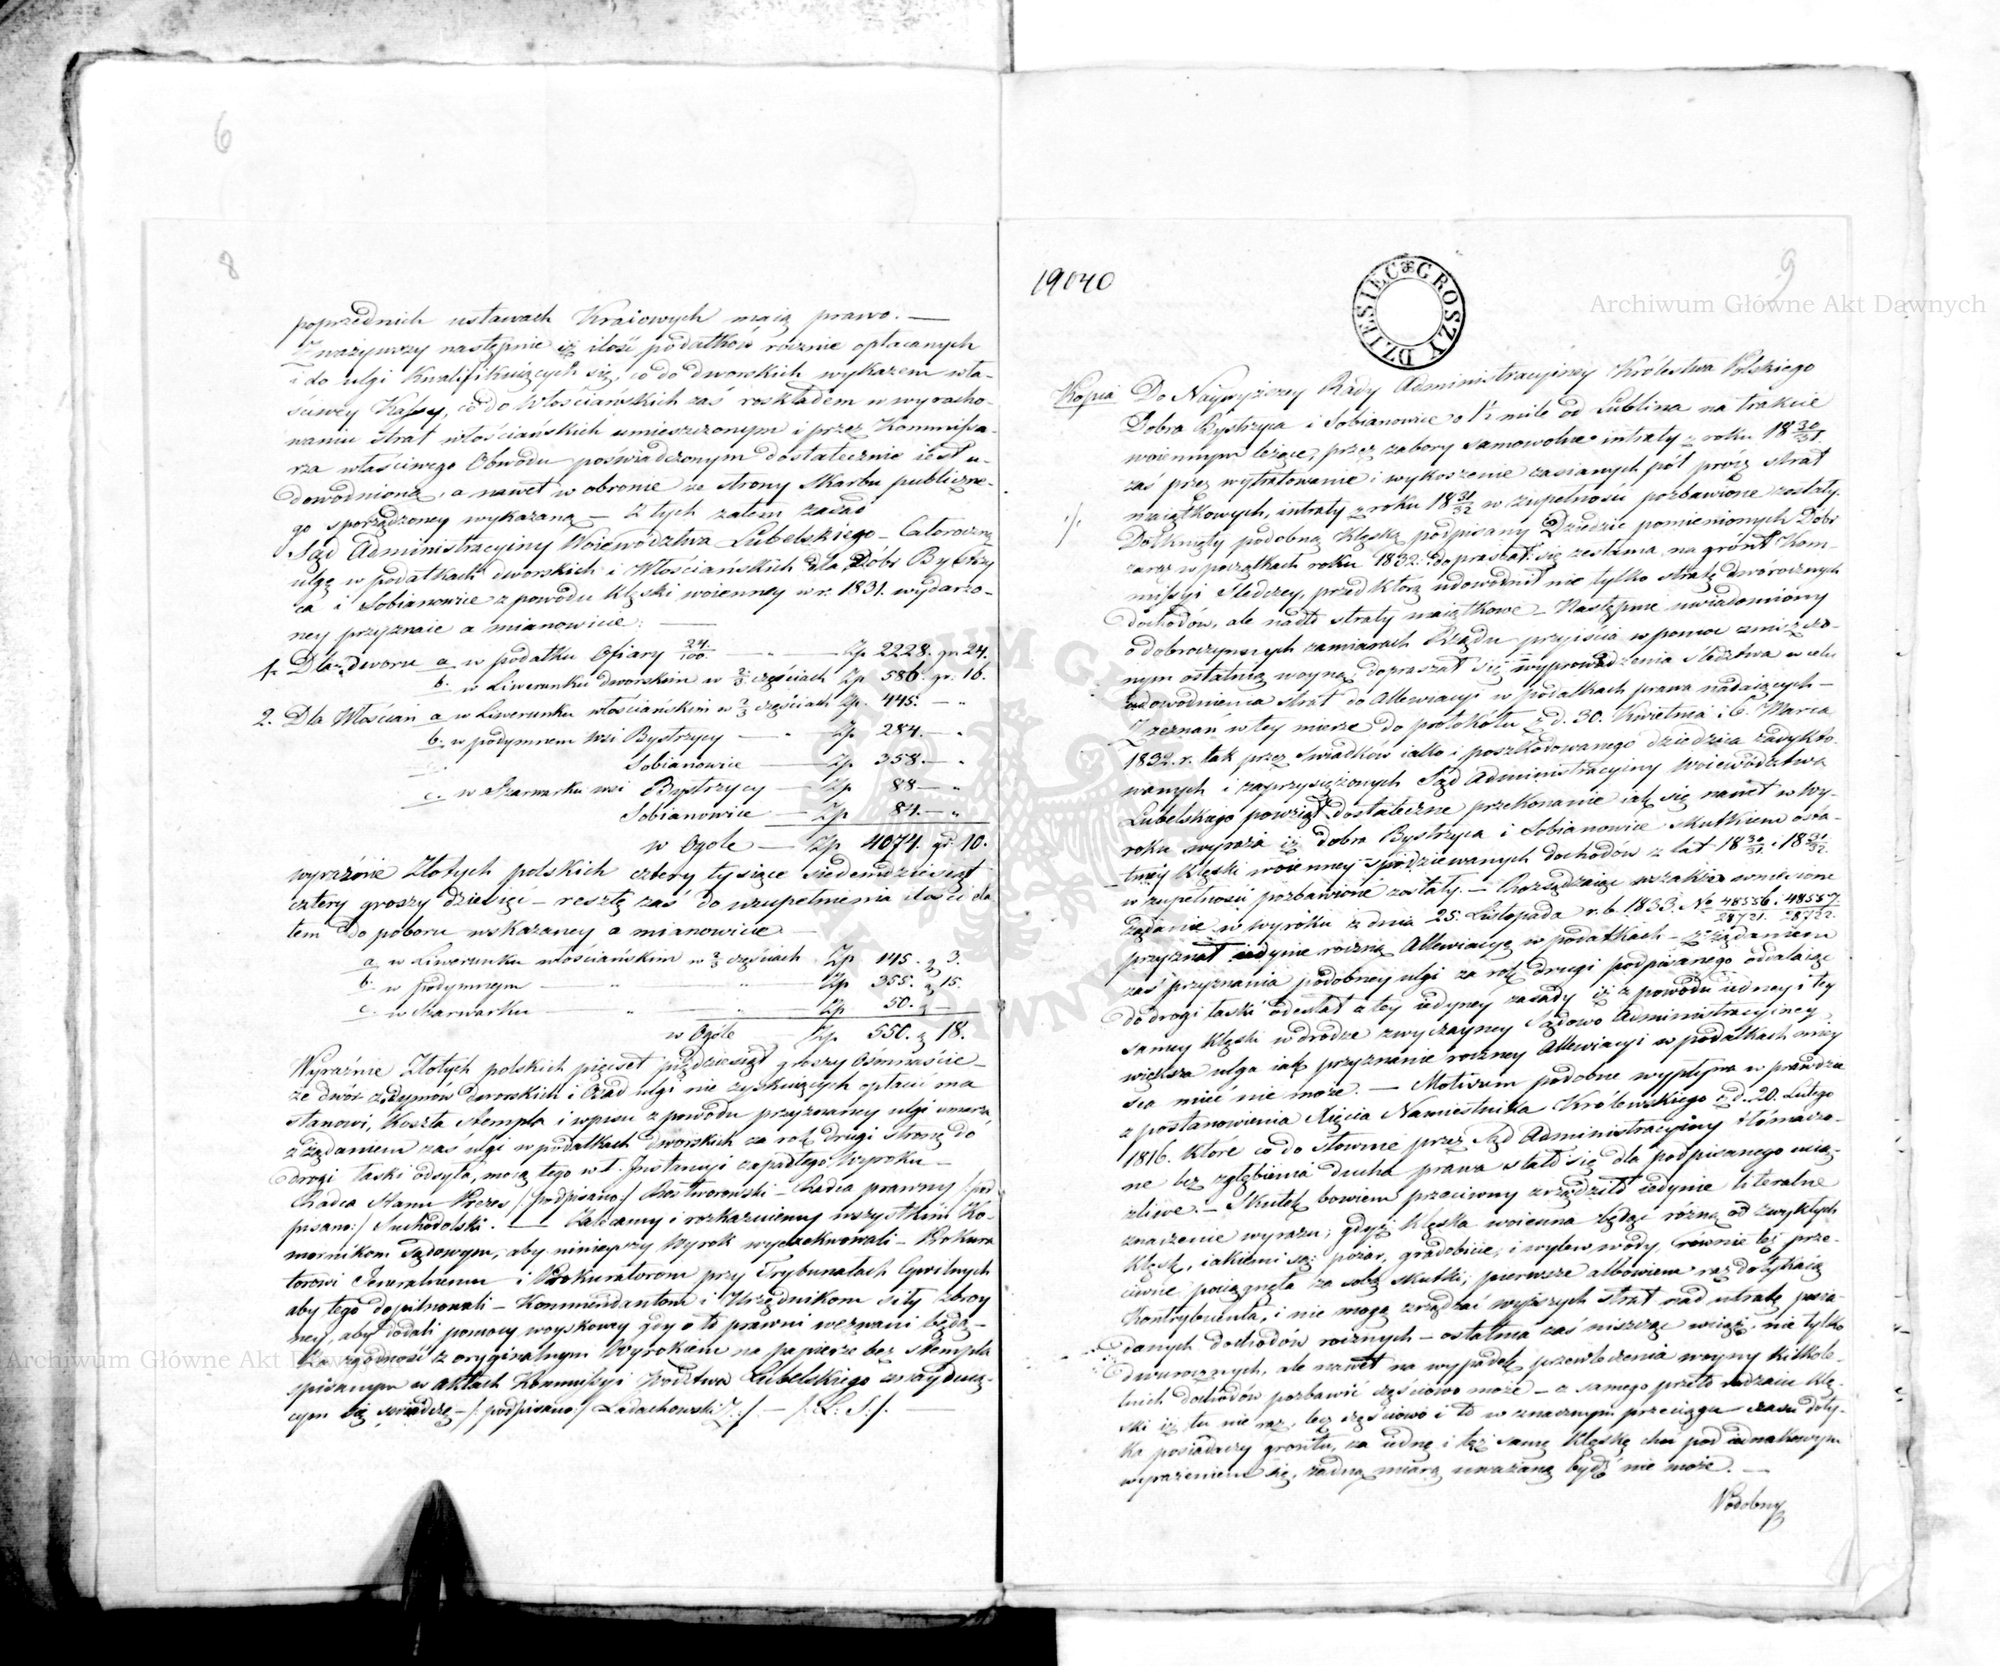 6
8
poprzednich ustawach Kraiowych maią prawo. —
Zważywszy następnie iż ilość podatków rocznie opłacanych
i do ulgi kwalifikuiących się, co do dworskich wykazem wła-
ściwey Kassy, co do Włościańskich zaś rozkładem w wyracho-
waniu strat włościańskich umieszczonym i przez Kommissa-
rza właściwego Obwodu poświadczonym dostatecznie iest u-
dowodnioną, a nawet w obronie ze strony Skarbu publiczne-
go sporządzoney wykazaną — Z tych zatem zasad
Sąd Administracyiny Woiewództwa Lubelskiego — Całoroczną
ulgę w podatkach dworskich i Włościańskich dla Dóbr Bystrzy
ca i Sobianowice z powodu klęski woienney w r. 1831. wydarzo-
ney przyznaie a mianowicie: —
1. Dla dworu a w podatku Ofiary 24/100 — Zp 2228. gr 24.
b. w Liwerunku dworskim w 2/3 częściach Zp 586. gr. 16.
2. Dla Włościan a w Liwerunku włościańskim w 2/3 częściach Zp. 445. — "
b. w podymnem wsi Bystrzycy — Zp 284. — "
Sobianowice — Zp 358. — "
c. w Szarwarku wsi Bystrzycy — Zp 88 — "
Sobianowice — Zp 84. — "
w Ogole — Zp 4074. gr 10.
wyraźnie Złotych polskich cztery tysiące siedmdziesiąt
cztery groszy dziesięć — resztę zaś do uzupełnienia ilości da
tem do poboru wskazaney a mianowicie —
a w Liwerunku włościańskim w 2/3 częściach Zp 145. g 3.
b. w podymnym — " " Zp 355. g 15.
c. w Szarwarku " " Zp 50. g —
w Ogóle Zp. 550. g 18.
Wyraźnie Złotych polskich pięćset pięćdziesiąt groszy Ośmnaście —
że dwór z dymów dworskich i Osad ulgi nie zyskuiących opłacić ma
stanowi, Koszta Stempla i wpisu z powodu przyznaney ulgi umarza
z żądaniem zaś ulgi w podatkach dworskich za rok drugi stronę do
drogi łaski odsyła, mocą tego w I. Instancyi zapadłego Wyroku —
Radca Stanu Prezes /:podpisano:/ Rostworowski — Radca prawny /:pod
pisano:/ Suchodolski. — Zalecamy i rozkazuiemy wszystkim Ko-
mornikom Sądowym, aby ninieyszy Wyrok wyexekwowali — Prokura
torowi Generalnemu i Prokuratorom przy Trybunałach Cywilnych
aby tego dopilnowali — Kommendantom i Urzędnikom siły zbroy
ney, aby dodali pomocy woyskowey gdy o to prawni wezwani będą —
Za zgodność z oryginalnym Wyrokiem na papierze bez Stempla
spisanym w aktach Kommissyi Woiewdztwa Lubelskiego znayduią-
cym się, świadczę — /:podpisano:/ Ladachowski /:/ — /:L: S:/. —
19040
DZIESIĘĆ GROSZY
9
Kopia Do Naywyższey Rady Administracyiney Królestwa Polskiego
Dobra Bystrzyca i Sobianowice o 1 1/2 mile od Lublina na trakcie
woiennym leżące, przez zabory samowolne intraty z roku 18 30/31.
zaś przez wytratowanie i wykoszenie zasianych pól prócz strat
maiątkowych, intraty z roku 18 31/32 w zupełności pozbawione zostały.
Dotknięty podobną klęską podpisany Dziedzic pomienionych Dóbr
zaraz w początkach roku 1832. dopraszał się zesłania na grónt Kom-
missyi Sledczey, przed którą udowodnił nie tylko stratę dwórocznych
dochodów, ale nadto straty maiątkowe — Następnie uwiadomiony
o dobroczynnych zamiarach Rządu przyiścia w pomoc zniszczo-
nym ostatnią woyną dopraszał się wyprowadzenia śledztwa w celu
udowodnienia strat do Allewiacyi w podatkach prawa nadaiących —
Z zeznań w tey mierze do protokółu z d. 30. Kwietnia i 6. Marca
1832. r. tak przez świadków iako i poszkodowanego dziedzica zadykto-
wanych i zaprzysiężonych Sąd Administracyiny Woiewództwa
Lubelskiego powziął dostateczne przekonanie iak się nawet w Wy-
roku wyraża iż dobra Bystrzyca i Sobianowice skutkiem osta-
tniey klęski woienney spodziewanych dochodów z lat 18 30/31 i 18 31/32
w zupełności pozbawione zostały. — Rozsądzaiąc wszakże wniesione
żądanie w wyroku z dnia 25. Listopada r. b. 1833. No 48556/28721. 48557/28722.
przyznał iedynie roczną Allewiacyę w podatkach — z żądaniem
zaś przyznania podobney ulgi za rok drugi podpisanego oddalaiąc
do drogi łaski odesłał a to z iedyney zasady iż z powodu iedney i tey
samey klęski w drodze zwyczayney Sądowo Administracyiney
większa ulga iak przyznanie roczney Allewiacyi w podatkach miey
sca mieć nie może. — Motivum podobne wypływa w prawdzie
z postanowienia Xięcia Namiestnika Królewskiego z d. 20. Lutego
1816. które co do słowne przez Sąd Administracyiny tłómaczo-
ne bez zgłębienia ducha prawa stało się dla podpisanego uciąż-
żliwe. — Skutek bowiem przeciwny zrządziło iedynie literalne
znaczenie wyrazu; gdyż klęska woienna będąc różną od zwykłych
klęsk, iakiemi są: pożar, gradobicie, i wylew wody, równie też prze-
ciwne pociągnęła za sobą skutki; pierwsze albowiem raz dotykaią
Kontrybuenta, i nie mogą zrządzać wyższych strat nad utratę posia-
danych dochodów rocznych — ostatnia zaś niszcząc wciąż, nie tylko
dwurocznych, ale nawet na wypadek przewleczenia woyny kilkole-
tnich dochodów pozbawić częściowo może — z samego przeto rodzaiu klę-
ski iż tu nie raz, lecz częściowo i to w znacznym przeciągu czasu doty-
ka posiadaczy gróntu, za iedną i tęż samę klęskę choć pod iednakowym
wyrażeniem się, żadną miarą uważaną bydź nie może. —
Podobny
Archiwum Główne Akt Dawnych
Archiwum Główne Akt Dawnych